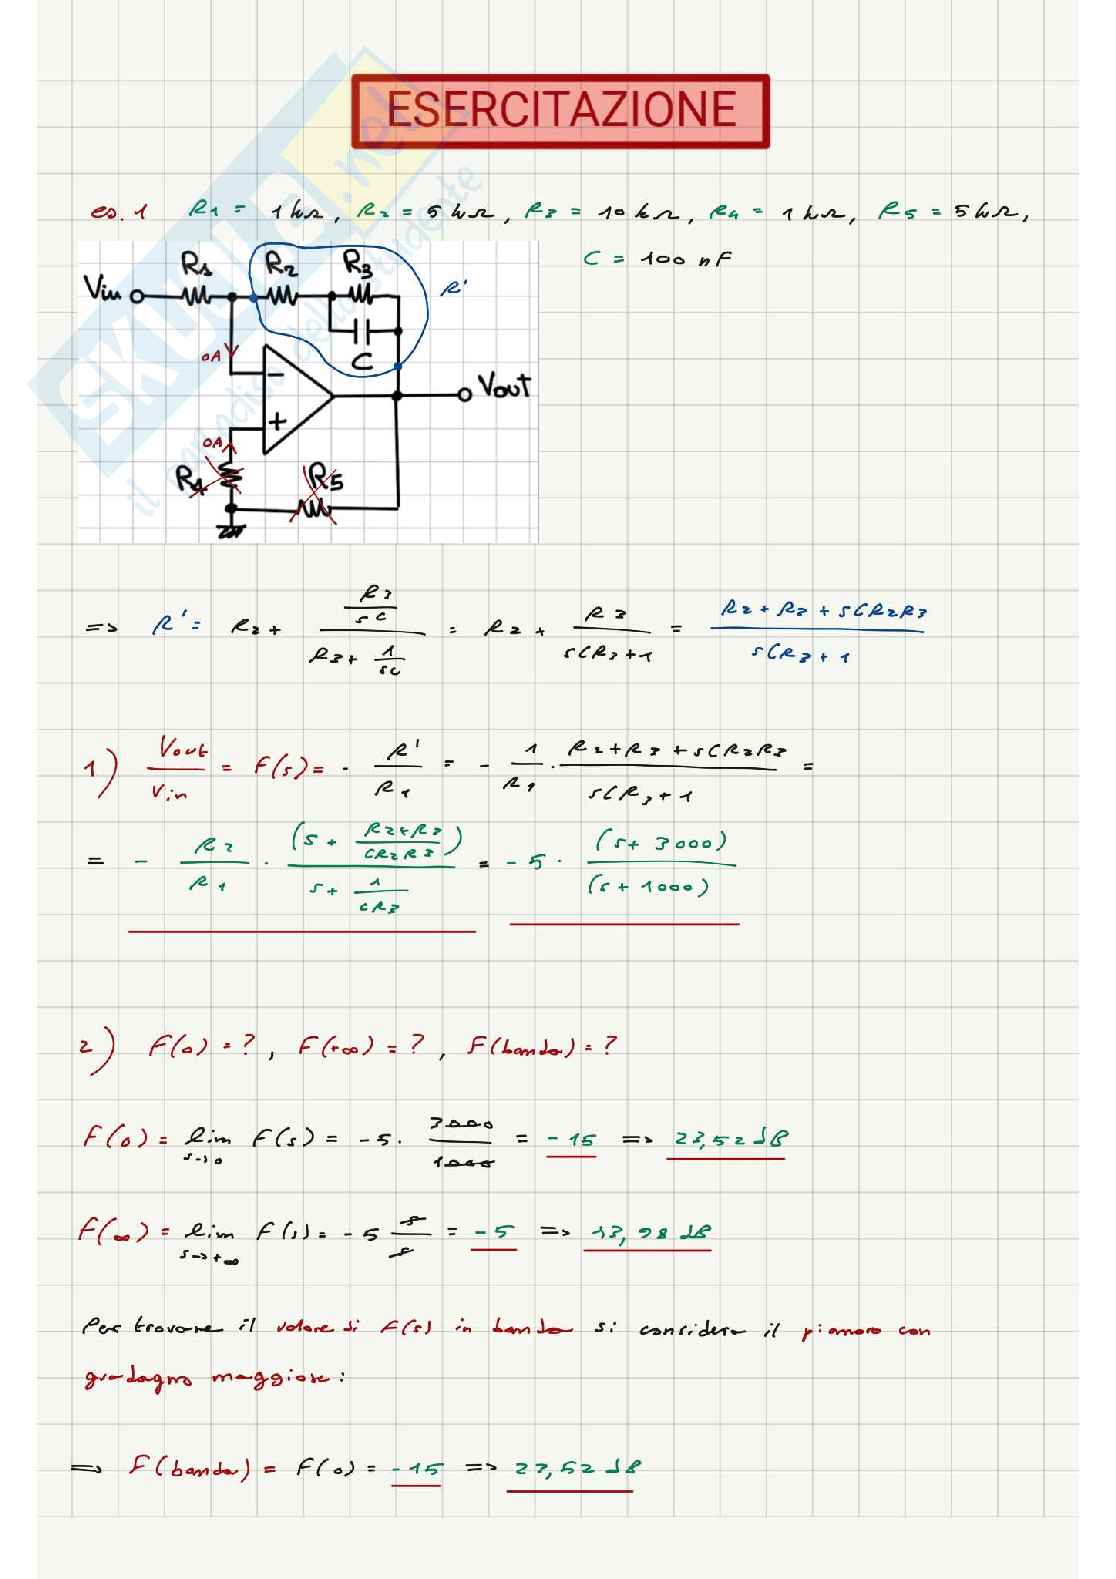 ESERCITAZIONE
es. 1 R1 = 1 kΩ, R2 = 5 kΩ, R3 = 10 kΩ, R4 = 1 kΩ, R5 = 5 kΩ,
C = 100 nF
R1 R2 R3 R'
Vin
0A C
− Vout
+
0A
R4 R5
=> R' = R2 + (R3/sC)/(R3 + 1/sC) = R2 + R3/(sCR3+1) = (R2+R3+sCR2R3)/(sCR3+1)
1) Vout/Vin = F(s) = - R'/R1 = - 1/R1 · (R2+R3+sCR2R3)/(sCR3+1) =
= - R2/R1 · (s + (R2+R3)/(CR2R3))/(s + 1/(CR3)) = -5 · (s+3000)/(s+1000)
2) F(0) = ?, F(+∞) = ?, F(banda) = ?
F(0) = lim s→0 F(s) = -5 · 3000/1000 = -15 => 23,52 dB
F(∞) = lim s→+∞ F(s) = -5 s/s = -5 => 13,98 dB
Per trovare il valore di F(s) in banda si considera il pianoro con
guadagno maggiore:
=> F(banda) = F(0) = -15 => 23,52 dB
SKUOLA.net
il paradiso dello studente